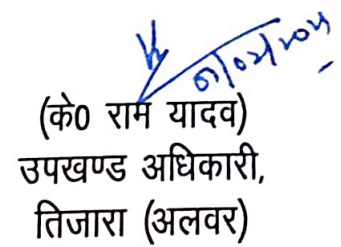 (के0 राम यादव)
उपखण्ड अधिकारी,
तिजारा (अलवर)